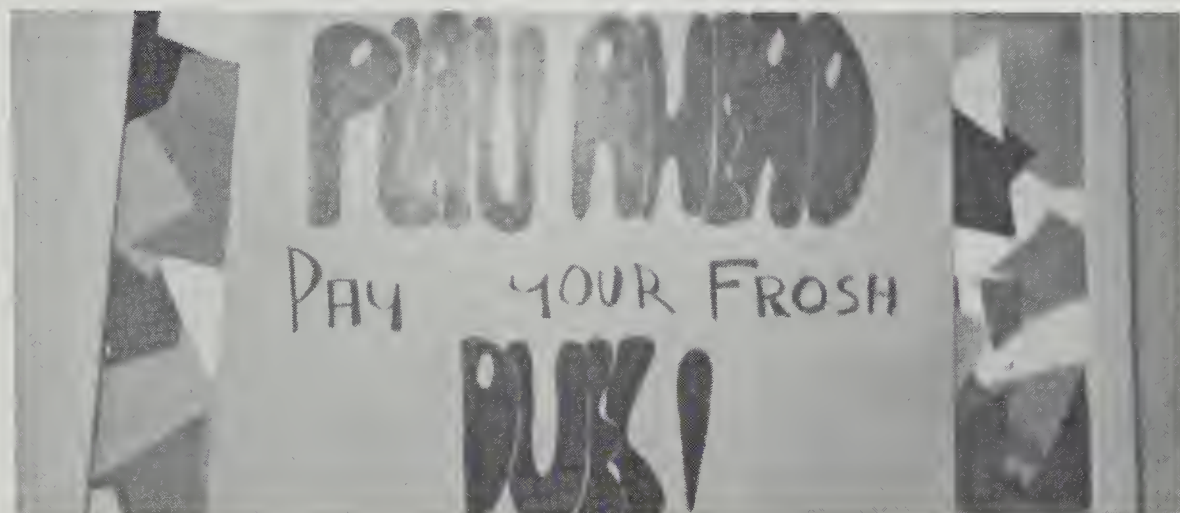 PLAN AHEAD
PAY YOUR FROSH
DUES!